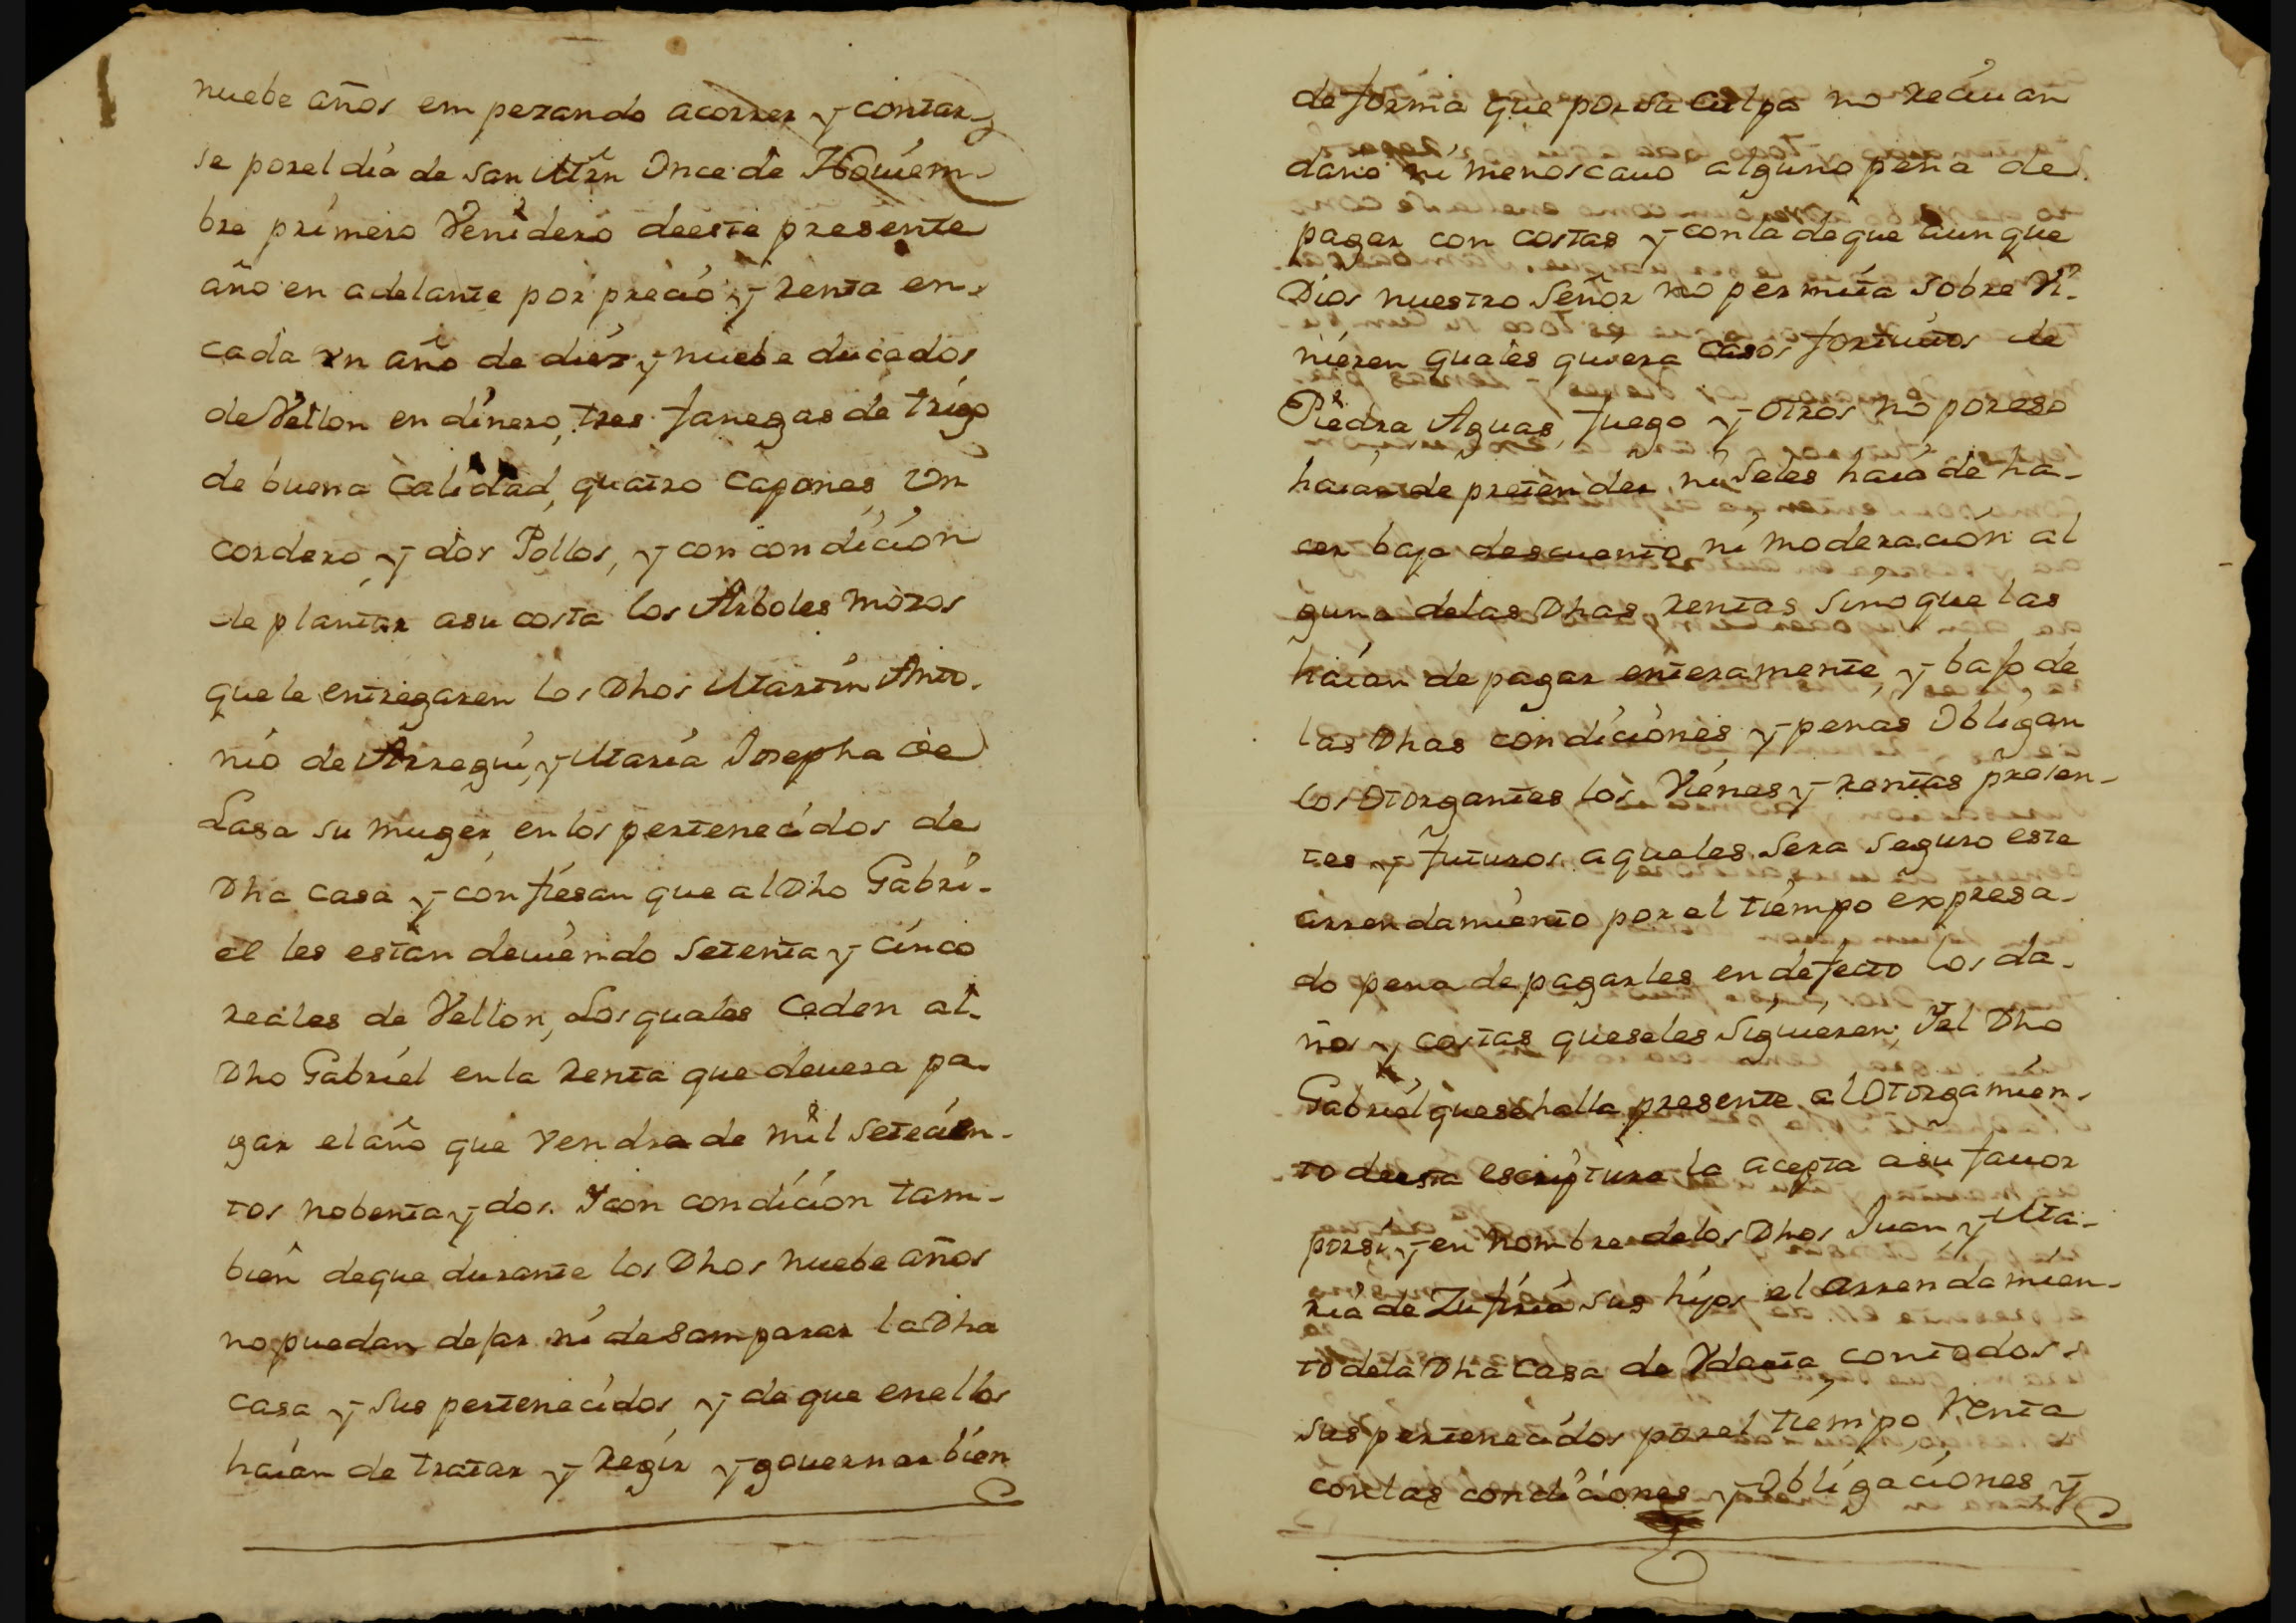 nuebe años empezando acorrer y contar-
se por el dia de San Mrn Once de Nouiem-
bre primero Venidero deeste presente
año en adelante por precio y Renta en-
cada vn año de diez y nuebe ducados
de Vellon en dinero, tres fanegas de trigo
de buena Calidad, quatro Capones, Vn
cordero, y dos Pollos, y con condicion
de plantar asu costa los Arboles mozos
que le entregaren los Dhos Martin Anto-
nio de Arregui, y Maria Josepha de
Lasa su muger, en los pertenecidos de
Dha casa y confiesan que al Dho Gabri-
el les estan deuiendo setenta y cinco
reales de Vellon, Los quales Ceden al
Dho Gabriel en la Renta que deuera pa-
gar el año que vendra de mil setecien-
tos nobenta y dos. Y con condicion tam-
bien deque durante los Dhos nuebe años
no puedan dejar ni desamparar la Dha
casa y sus pertenecidos y de que en ellos
haian de tratar y Regir y gouernar bien
de forma que por su culpa no reciuan
daño ni menoscauo alguno pena de
pagar con costas y con la de que aunque
Dios nuestro Señor no permita sobre Vi-
nieren quales quiera casos fortuitos de
Piedra Aguas, fuego y otros no por eso
haian de pretender, ni seles haia de ha-
cer baja descuento ni moderacion al
guna delas Dhas Rentas sino que las
haian de pagar enteramente, y bajo de
las Dhas condiciones y penas Obligan
los Otorgantes los Vienes y rentas presen-
tes y futuros, aqueles sera seguro este
arrendamiento por el tiempo expresa-
do pena de pagarles en defecto los da-
ños y costas queseles siguieren; Y el Dho
Gabriel quese halla presente al Otorgamien-
to deesta escriptura la acepta asu fauor
por si, y en nombre de los Dhos Juan y Ma-
ria de Zufiria sus hijos el arrendamien-
to dela Dha Casa de Vdaeta con todos
sus pertenecidos por el tiempo, Renta
con las condiciones y Obligaciones y